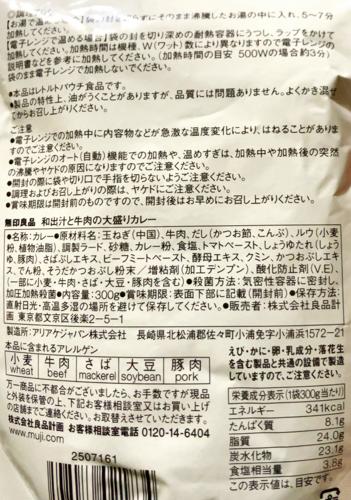 【お湯で温める場合】袋の封を切らずにそのまま沸騰したお湯の中に入れ、5～7分
加熱してください。
【電子レンジで温める場合】袋の封を切り深めの耐熱容器にうつし、ラップをかけて
加熱してください。加熱時間は機種、W(ワット)数により異なりますので電子レンジの
説明書などを参考に加熱してください。（加熱時間の目安 500Wの場合約3分）
袋のまま電子レンジで加熱しないでください。
●本品はレトルトパウチ食品です。
●製品の特性上、油がうくことがありますが、品質には問題ありません。よくかき混ぜ
てからお召し上がりください。
ご注意
●電子レンジでの加熱中に内容物などが急激な温度変化により、はねることがあります
のでご注意ください。
●電子レンジのオート(自動)機能での加熱や、温めすぎは、加熱中や加熱後の突然
の沸騰やヤケドの原因になりますのでご注意ください。
●開封の際に袋や切り口で手指を切らないようご注意ください。
●調理およびお召し上がりの際は、ヤケドにご注意ください。
●賞味期限は開封前のものですので、開封後はお早めにお召し上がりください。
無印良品 和出汁と牛肉の大盛りカレー
●名称:カレー●原材料名:玉ねぎ(中国)、牛肉、だし(かつお節、こんぶ)、ルウ(小麦
粉、植物油脂)、調製ラード、砂糖、カレー粉、食塩、トマトペースト、しょうゆたれ(しょ
うゆ、豚肉)、さばぶしエキス、ビーフミートペースト、酵母エキス、クミン、かつおぶしエキ
ス、でん粉、そうだかつおぶし粉末／増粘剤(加工デンプン)、酸化防止剤(V.E)、
(一部に小麦・牛肉・さば・大豆・豚肉を含む)●殺菌方法:気密性容器に密封し、
加圧加熱殺菌●内容量:300g●賞味期限:表面下部に記載(開封前)●保存方法:
直射日光・高温多湿の場所を避けて保存してください。●販売者:株式会社良品計
画 東京都文京区後楽2－5－1
製造所:アリアケジャパン株式会社 長崎県北松浦郡佐々町小浦免字小浦浜1572－21
本品に含まれるアレルゲン
小麦 牛肉 さば 大豆 豚肉
wheat beef mackerel soybean pork
えび・かに・卵・乳成分・落花生
を含む製品と共通の設備で製造
していますので、ご注意ください。
万一商品に不都合がございましたら、お手数ですが現品
と外装を保管の上、下記お客様相談室又はお買い上げ
の店舗までご連絡ください。お取替えさせていただきます。
株式会社良品計画 お客様相談室電話 0120-14-6404
www.muji.com
2507161
栄養成分表示(1袋300g当たり)
エネルギー 341kcal
たんぱく質 8.1g
脂質 24.0g
炭水化物 23.1g
食塩相当量 3.8g
この表示値は、目安です。